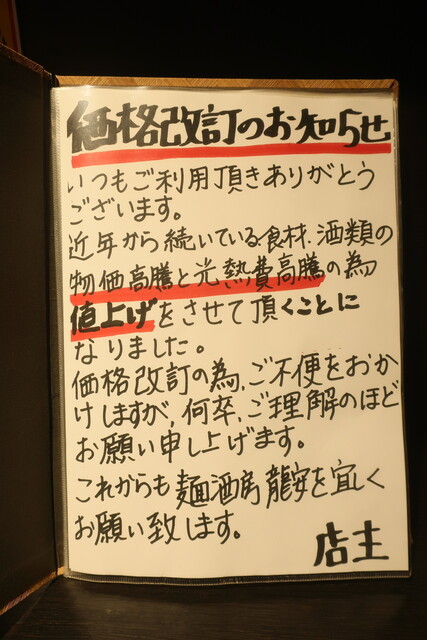 価格改訂のお知らせ
いつもご利用頂きありがとう
ございます。
近年から続いている食材、酒類の
物価高騰と光熱費高騰の為
値上げをさせて頂くことに
なりました。
価格改訂の為、ご不便をおか
けしますが、何卒、ご理解のほど
お願い申し上げます。
これからも麺酒房 龍安を宜しく
お願い致します。
店主